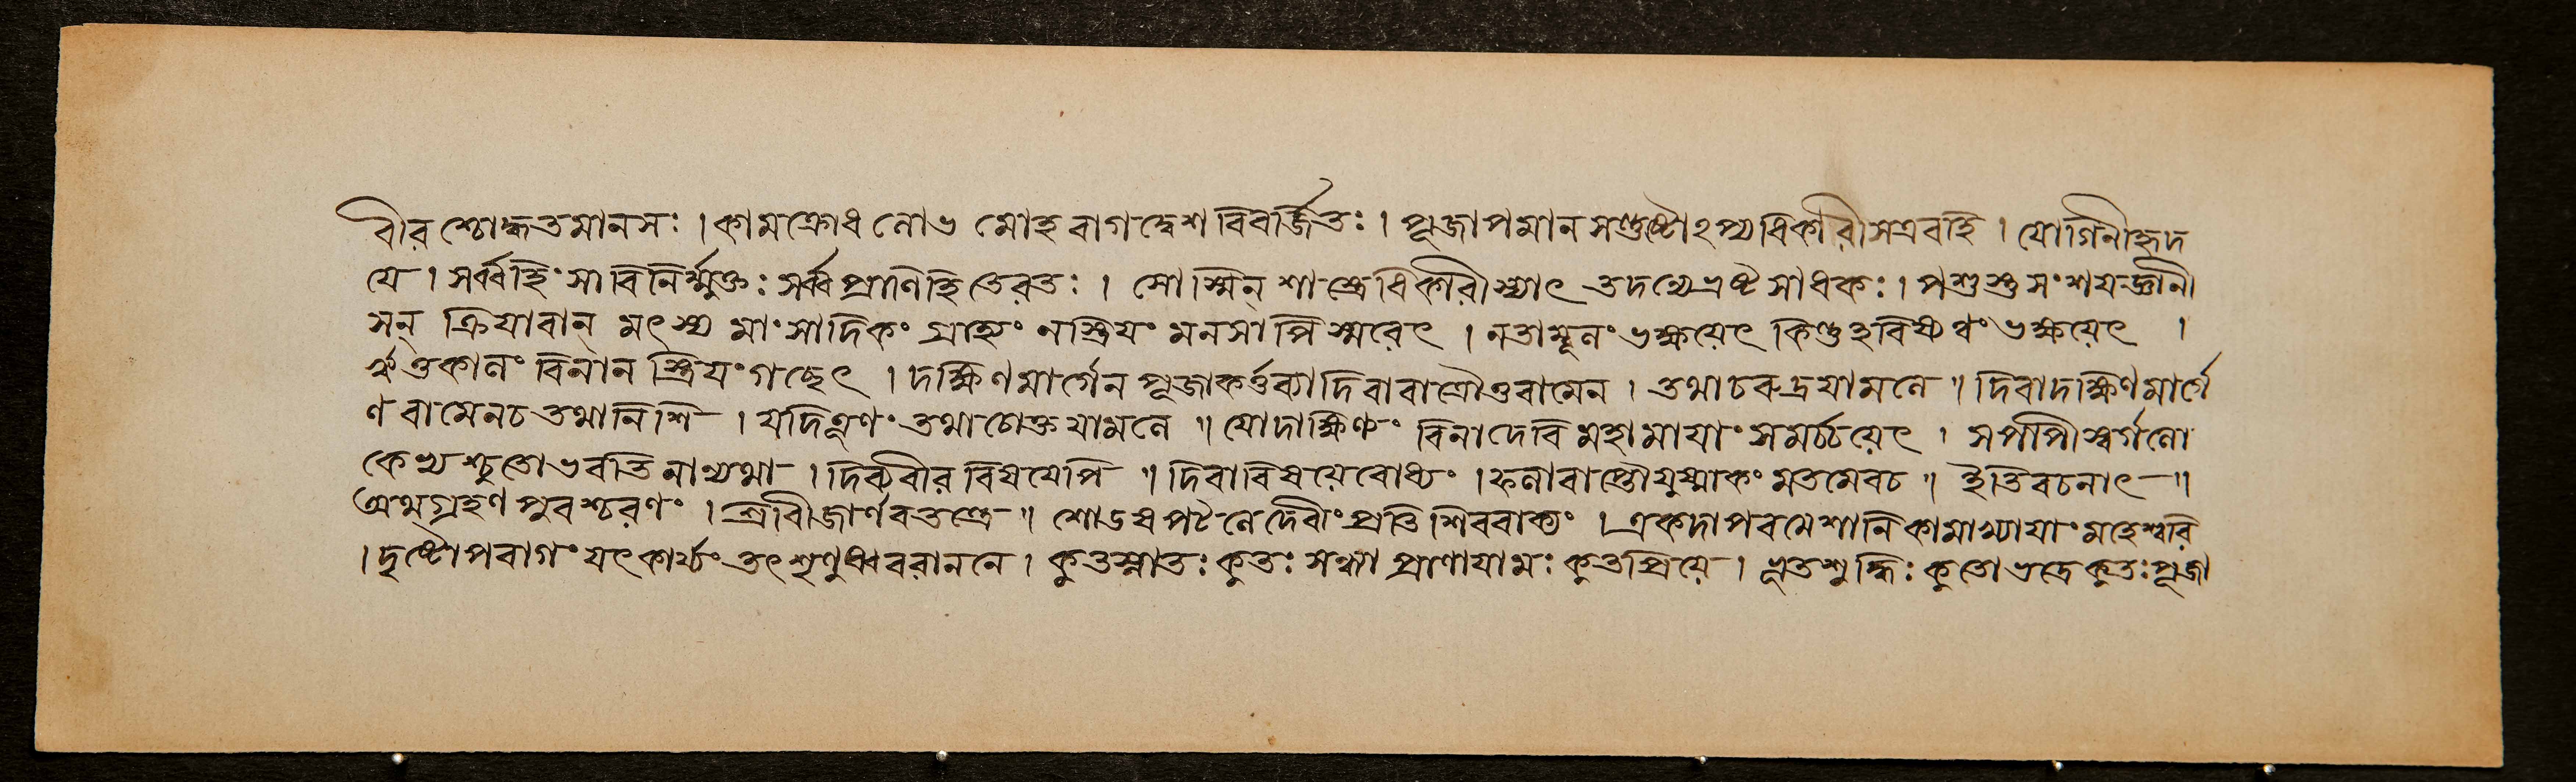 বীরশ্চোদ্ধতমানসঃ । কামক্রোধলোভ মোহ রাগদ্বেশ বিবর্জ্জিতঃ । পূজাপমানসন্তুষ্টোঽপ্যধিকারী স এব হি । যোগিনীহৃদ
যে । সর্ব্বহিংসাবিনির্ম্মুক্তঃ সর্ব্বপ্রাণিহিতেরতঃ । সোস্মিন্ শাস্ত্রেধিকারীস্যাৎ তদন্যেভ্রষ্টসাধকঃ । পশুস্তুসংশয়জ্ঞানী
সন্ ক্রিয়াবান্ মৎস্য মাংসাদিকং গ্রাহ্যং নস্ত্রিয়ং মনসাপি স্মরেৎ । নতাম্বূলং ভক্ষয়েৎ কিন্তু হবিষ্যন্নং ভক্ষয়েৎ ।
ঋতুকালং বিনান স্ত্রিয়ং গচ্ছেৎ । দক্ষিণমার্গেন পূজাকর্ত্তব্যাদিবারাত্রৌতুবামেন । তথাচরুদ্রযামলে ॥ দিবাদক্ষিণমার্গে
ণ বামেনচ তথানিশি । যদিপূর্ণং তথাচোক্ত যামলে ॥ যোদাক্ষিণ্যং বিনাদেবি মহামায়াং সমর্চ্চয়েৎ । সপাপীস্বর্গলো
কেষ্যশ্চুতোভবতি নান্যথা । দিব্যবীর বিষয়েপি ॥ দিবাবিষয়েবোধ্যং । ফলাবাপ্তৌযুষ্মাকং মতমেবচ ॥ ইতিবচনাৎ ॥
অথগ্রহণ পুরশ্চরণং । শ্রীবীজার্ণবতন্ত্রে ॥ শোড়ষপটলেদেবীংপ্রতি শিববাক্যং । একদাপরমেশানি কামাখ্যায়াং মহেশ্বরি
। দৃষ্টোপরাগং যৎকার্য্যং তৎ শৃণুধ্ববরাননে । কুতস্নাতঃ কুতঃ সন্ধ্যা প্রাণায়ামঃ কুতপ্রিয়ে । ভূতশুদ্ধিঃ কুতোভদ্রে কুতঃপূজা